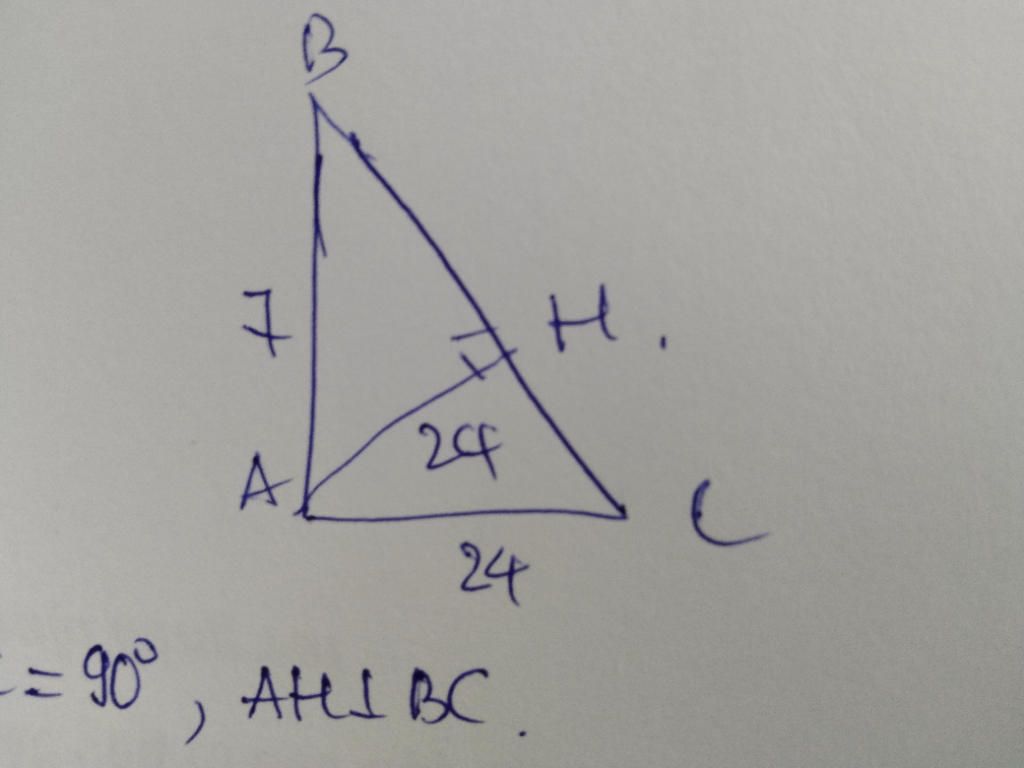 B
7
H .
A
24
C
24
= 90°, AH⊥BC.